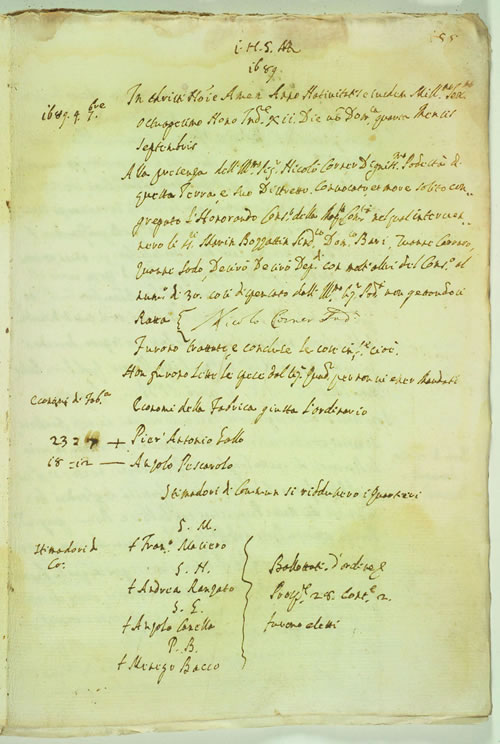 155
i. H. S. M.
1689.
1689. 4. 7bre
In christi Noie Amen Anno Nativitatis eiusdem Mill.mo Sex.mo
Octuagesimo Nono Ind.e XII. Die v.o Dom.ca quarta Mensis
Septembris
Alla presenza dell' Ill.mo Sig.r Nicolò Corner Digniss.mo Podestà di
questa Terra, e suo Distretto. Convocato et more solito con-
gregato l'Honorando Cons.o della Mag.ca Com.tà nel qual interven-
nero li Sig.ri Stevin Bozzattin Sind.co Dom.co Bari, Zuanne
Zuanne Sodo, Dep.ti con molt' altri del Cons.o al
num.o di 30. coll' dall' Ill.mo Sig.r Pod.tà non essendoci
Rassa { Nicolò Corner Pod.tà
Furono trattate, e concluse le cose inf.te cioè.
Non furono lette le spese dal Sig.r Quad.r per non vi esser mandati
Economi di Fab.ca
Economi della Fabrica giusta l'ordinario
23 2 7 + Pier' Antonio Gallo
18 = 12 — Angolo Pescarolo
Stimadori di Commun si riddussero i Quartieri
Stimadori di
Co:
S. M.
+ Fran.co Maciero
S. N.
+ Andrea Rangato
S. E.
+ Angolo Canella
P. B.
+ Menego Bacco
Ballottati d'ordine
Pros.ti 28. Cont.e 2.
furono eletti